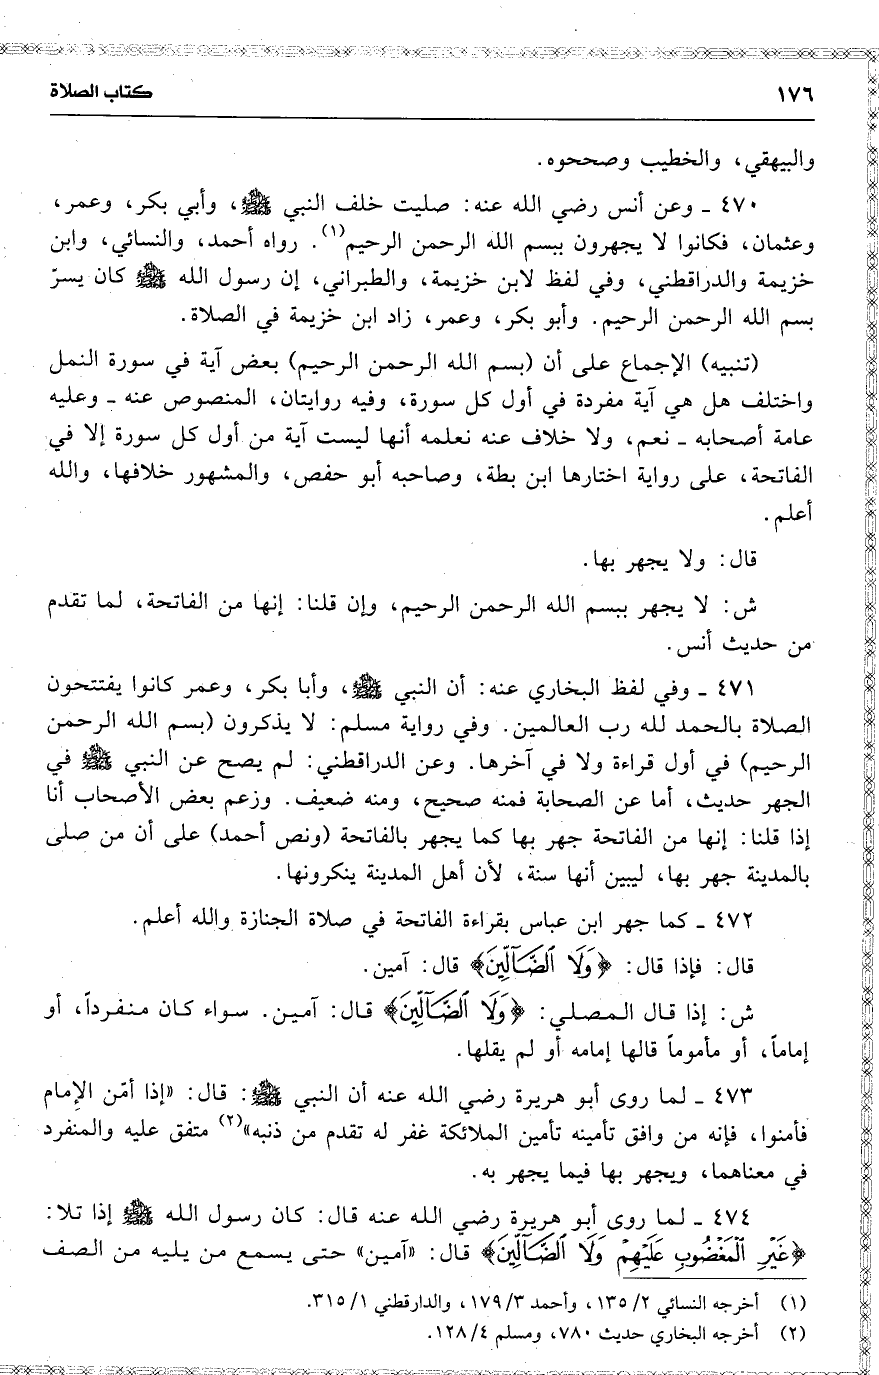 ١٧٦ كتاب الصلاة
والبيهقي، والخطيب وصححوه.
٤٧٠ ـ وعن أنس رضي الله عنه: صليت خلف النبي ﷺ، وأبي بكر، وعمر،
وعثمان، فكانوا لا يجهرون ببسم الله الرحمن الرحيم(١). رواه أحمد، والنسائي، وابن
خزيمة والدراقطني، وفي لفظ لابن خزيمة، والطبراني، إن رسول الله ﷺ كان يسرّ
بسم الله الرحمن الرحيم. وأبو بكر، وعمر، زاد ابن خزيمة في الصلاة.
(تنبيه) الإجماع على أن (بسم الله الرحمن الرحيم) بعض آية في سورة النمل
واختلف هل هي آية مفردة في أول كل سورة، وفيه روايتان، المنصوص عنه ـ وعليه
عامة أصحابه ـ نعم، ولا خلاف عنه نعلمه أنها ليست آية من أول كل سورة إلا في
الفاتحة، على رواية اختارها ابن بطة، وصاحبه أبو حفص، والمشهور خلافها، والله
أعلم.
قال: ولا يجهر بها.
ش: لا يجهر ببسم الله الرحمن الرحيم، وإن قلنا: إنها من الفاتحة، لما تقدم
من حديث أنس.
٤٧١ ـ وفي لفظ البخاري عنه: أن النبي ﷺ، وأبا بكر، وعمر كانوا يفتتحون
الصلاة بالحمد لله رب العالمين. وفي رواية مسلم: لا يذكرون (بسم الله الرحمن
الرحيم) في أول قراءة ولا في آخرها. وعن الدراقطني: لم يصح عن النبي ﷺ في
الجهر حديث، أما عن الصحابة فمنه صحيح، ومنه ضعيف. وزعم بعض الأصحاب أنا
إذا قلنا: إنها من الفاتحة جهر بها كما يجهر بالفاتحة (ونص أحمد) على أن من صلى
بالمدينة جهر بها، ليبين أنها سنة، لأن أهل المدينة ينكرونها.
٤٧٢ ـ كما جهر ابن عباس بقراءة الفاتحة في صلاة الجنازة والله أعلم.
قال: فإذا قال: ﴿وَلَا ٱلضَّآلِّينَ﴾ قال: آمين.
ش: إذا قال المصلي: ﴿وَلَا ٱلضَّآلِّينَ﴾ قال: آمين. سواء كان منفرداً، أو
إماماً، أو مأموماً قالها إمامه أو لم يقلها.
٤٧٣ ـ لما روى أبو هريرة رضي الله عنه أن النبي ﷺ: قال: «إذا أمّن الإمام
فأمنوا، فإنه من وافق تأمينه تأمين الملائكة غفر له تقدم من ذنبه»(٢) متفق عليه والمنفرد
في معناهما، ويجهر بها فيما يجهر به.
٤٧٤ ـ لما روى أبو هريرة رضي الله عنه قال: كان رسول الله ﷺ إذا تلا:
﴿غَيْرِ ٱلْمَغْضُوبِ عَلَيْهِمْ وَلَا ٱلضَّآلِّينَ﴾ قال: «آمين» حتى يسمع من يليه من الصف
(١) أخرجه النسائي ٢/ ١٣٥، وأحمد ٣/ ١٧٩، والدارقطني ١/ ٣١٥.
(٢) أخرجه البخاري حديث ٧٨٠، ومسلم ٤/ ١٢٨.